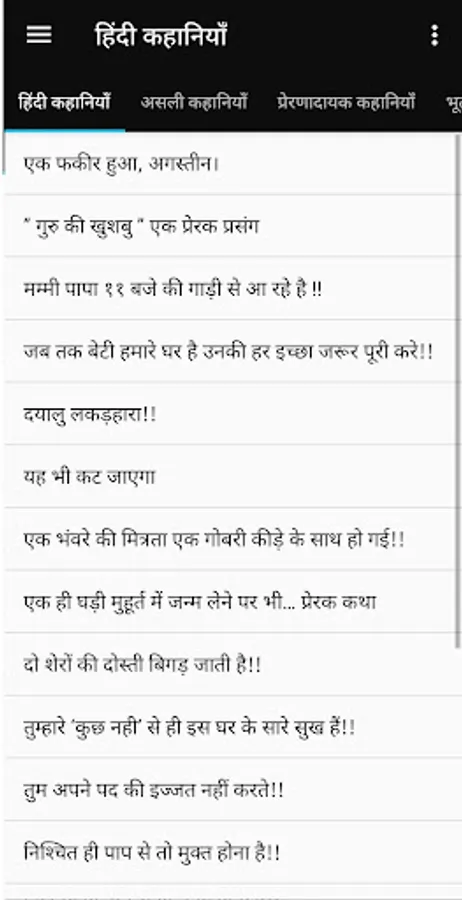 हिंदी कहानियाँ
हिंदी कहानियाँ असली कहानियाँ प्रेरणादायक कहानियाँ
एक फकीर हुआ, अगस्तीन।
” गुरु की खुशबु “ एक प्रेरक प्रसंग
मम्मी पापा ११ बजे की गाड़ी से आ रहे है !!
जब तक बेटी हमारे घर है उनकी हर इच्छा जरूर पूरी करे!!
दयालु लकड़हारा!!
यह भी कट जाएगा
एक भंवरे की मित्रता एक गोबरी कीड़े के साथ हो गई!!
एक ही घड़ी मुहूर्त में जन्म लेने पर भी... प्रेरक कथा
दो शेरों की दोस्ती बिगड़ जाती है!!
तुम्हारे ‘कुछ नही’ से ही इस घर के सारे सुख हैं!!
तुम अपने पद की इज्जत नहीं करते!!
निश्चित ही पाप से तो मुक्त होना है!!